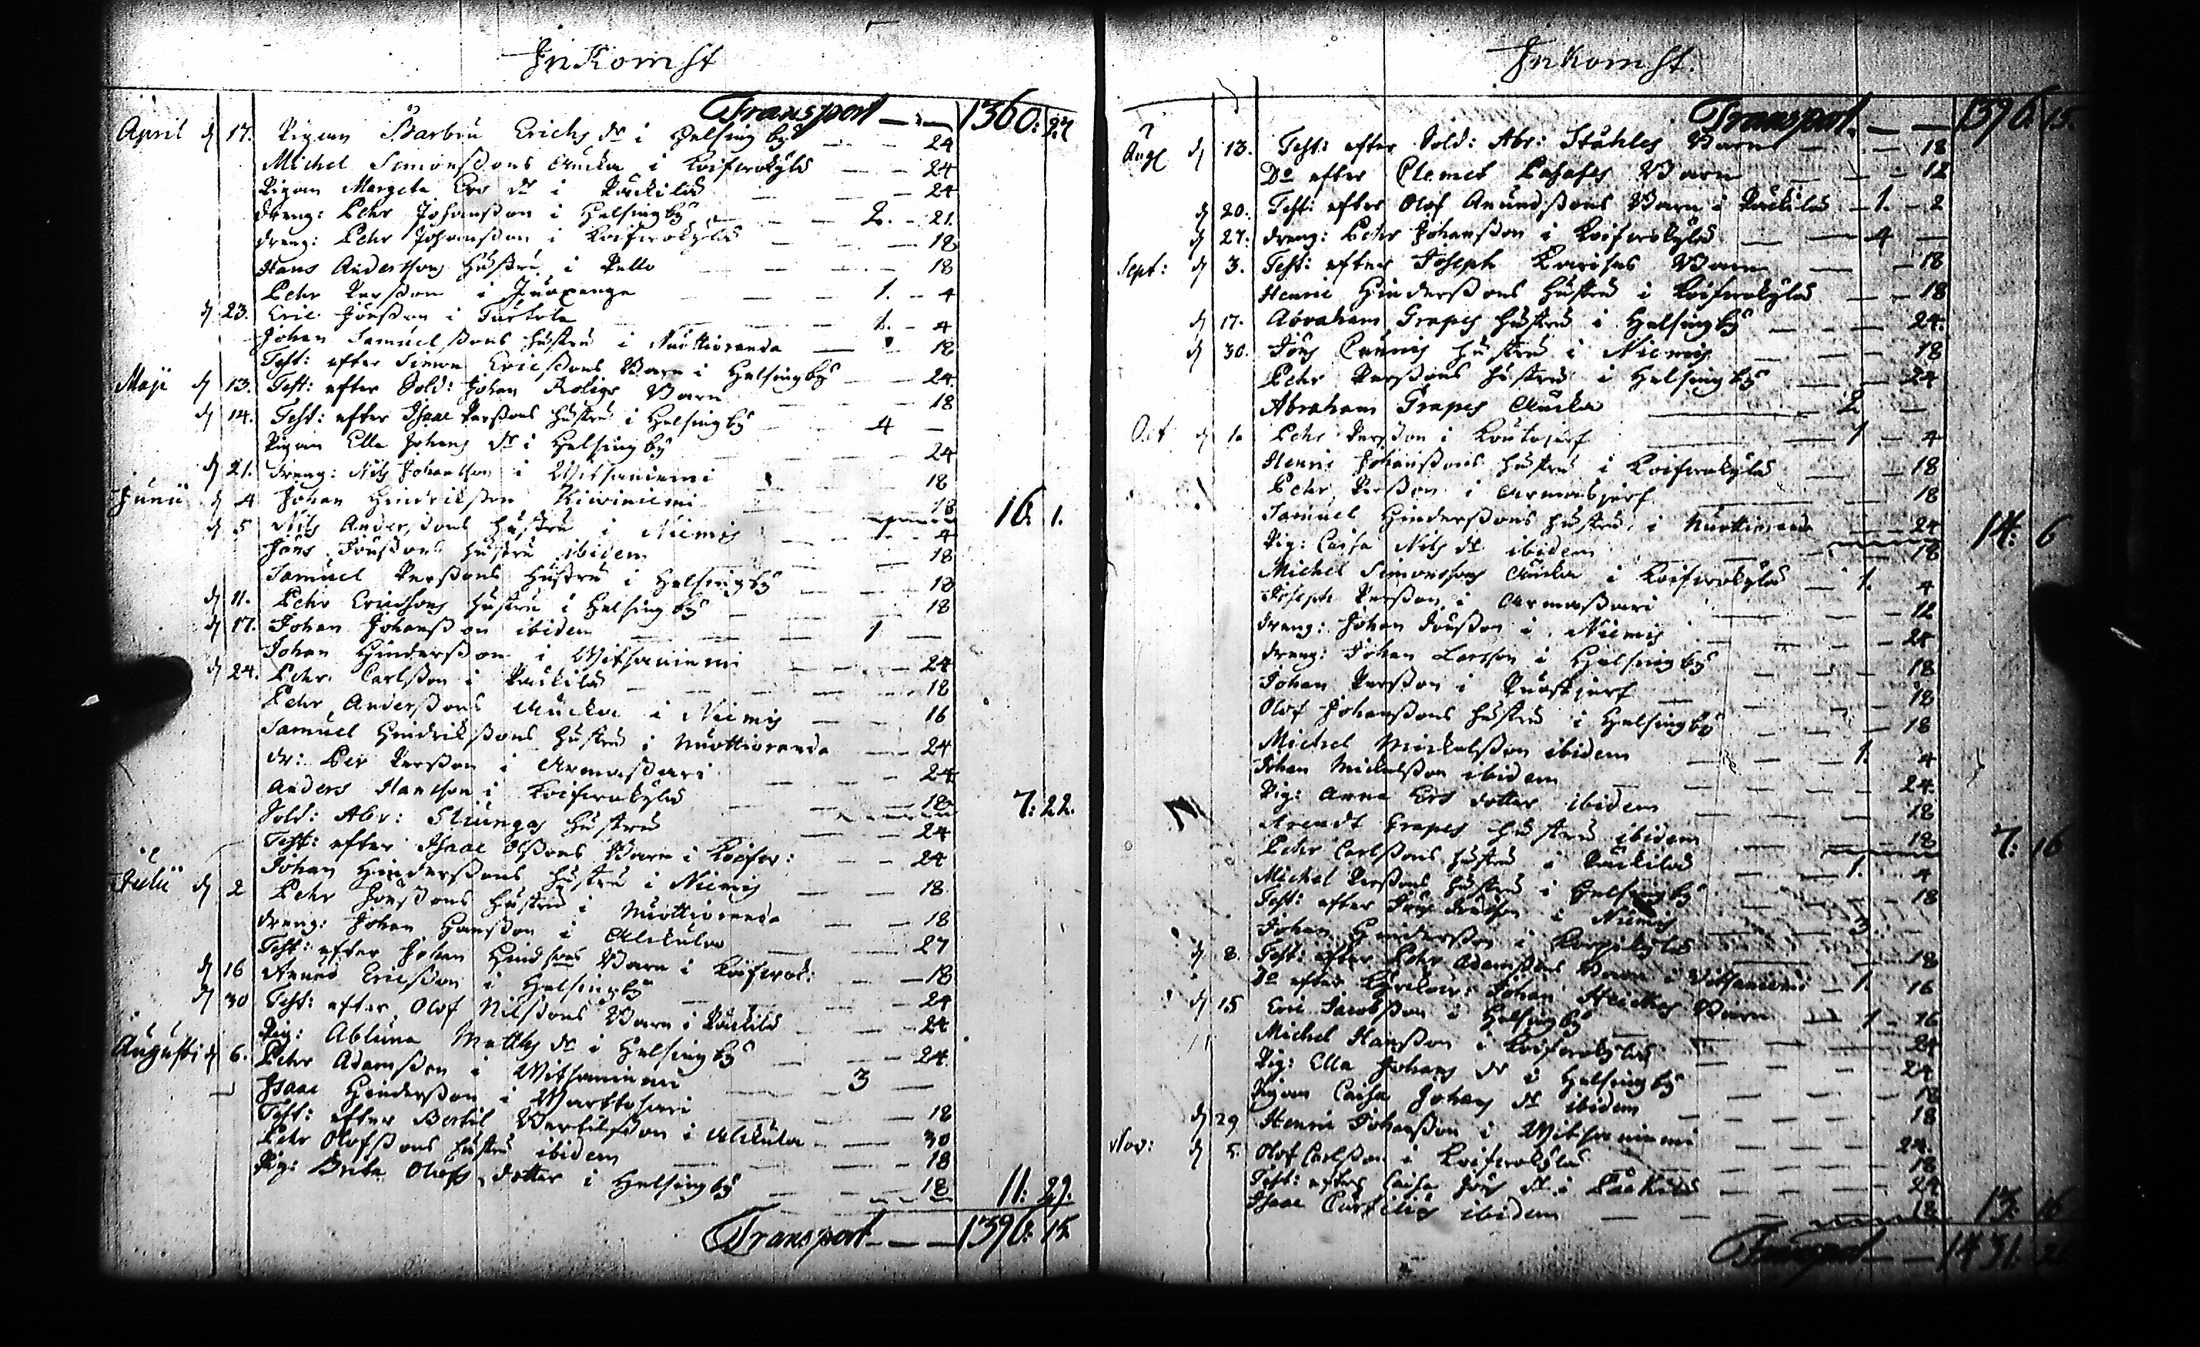 Inkomst
Transport 1360: 27
April d 17. Pigan Barbru Erichs dr i Helsingby 24
Michel Simonssons Encka i Koifwrakylä 24
Pigan Margeta Ers dr i Päckilä 24
Dreng: Pehr Johansson i Helsingby 2. 21.
Dreng: Pehr Johansson i Koifwrakylä 18
Hans Anderssons hustru i Pello 18
Pehr Persson i Juoxenge 1. 4
d 23. Eric Jönsson i Turtola 1. 4
Johan Samuelssons hustru i Nuottioranda 18
Test: efter Simon Ericssons Barn i Helsingby 24
Maji d 13. Test: efter Sold: Johan Roligs Barn 18
d 14. Test: efter Isaac Perssons hustru i Helsingby 4
Pigan Ella Johans dr i Helsingby 24
d 21. Dreng: Nils Johansson i Witsaniemi 18
Junii d 4 Johan Hindriksson Kiwiniemi 18 16. 1.
d 5 Nils Anderssons hustru i Niemis 1. 4
Jöns Jönssons hustru ibidem 18
Samuel Perssons hustru i Helsingby 18
d 11. Pehr Ericssons hustru i Helsingby 18
d 17. Johan Johansson ibidem 1
Johan Hindersson i Witsaniemi 24
d 24. Pehr Carlsson i Päckilä 18
Pehr Anderssons Encka i Niemis 16
Samuel Hindrikssons hustru i Nuottioranda 24
Dr: Per Persson i Armassari 24
Anders Hansson i Koifwrakylä 18 7: 22.
Sold: Abr: hustru 24
Test: efter Isaac Olssons Barn i 24
Johan Hinderssons hustru i Niemis 18
Julii d 2 Pehr Jönssons hustru i Nuottioranda 18
Dreng: Johan Hansson i Alkula 27
Test: efter Johan Hindssons Barn i Koifwrak: 18
d 16 Ericsson i Helsingby 24
d 30 Test: efter Olof Nilssons Barn i Päckilä 24
Pig: Abluna Matths dr i Helsingby 24
Augusti d 6. Pehr Adamsson i Witsaniemi 3
Isaac Hindersson i Marttosari 18
Test: efter Bertil Bertilsson i Alkula 30
Pehr Olofssons hustru ibidem 18
Pig: Brita Olofs dotter i Helsingby 18 11: 29.
Transport 1396: 15.
Inkomst.
Transport. 1396. 15.
Aug d 13. Test: efter Sold: Abr: Ståhles Barn 18
Do efter Clemet Barn 12
d 20. Test: efter Olof Anundssons Barn i Päckilä 1. 2
d 27. Dreng: Pehr Johansson i Koifwrakylä 4
Sept: d 3. Test: efter Joseph Barn 18
Henric Hinderssons hustru i Koifwrakylä 18
d 17. Abraham Grapes hustru i Helsingby 24.
d 30. Jöns hustru i Niemis 18
Pehr Perssons hustru i Helsingby 24
Abraham Grapes Encka 2
Oct d 1. Pehr Persson i 1 4
Henric Johanssons hustru i Koifwrakylä 18
Pehr Persson i Armasjerf 18
Samuel Hinderssons hustru i Nuottioranda 24 14: 6
Pig: Caisa Nils dr ibidem 18
Michel Simonssons Encka i Koifwrakylä 1. 4
Joseph Persson i Armassari 12
Dreng: Johan Jönsson i Niemis 24
Dreng: Johan Larsson i Helsingby 18
Johan Persson i 18
Olof Johanssons hustru i Helsingby 18
Michel Mickelsson ibidem 1. 4
Johan Mickelsson ibidem 24.
Pig: Anna Ers dotter ibidem 18
Arendt Grapes hustru ibidem 18 7: 16
Pehr Carlssons hustru i Päckilä 1. 4
Michel Perssons hustru i Helsingby 18
Test: efter Jöns i Niemis 3
Johan Hindersson i 18
d 8. Test: efter Pehr Adamssons Barn i Witsaniemi 1. 16
Do efter Johan Barn 1. 16
d 15 Eric Jacobsson i Helsingby 24
Michel Hansson i Koifwrakylä 24
Pig: Ella Johans dr i Helsingby 18
Pigan Caisa Johans dr ibidem 18
d 29 Henric Johansson i Witsaniemi 24.
Nov: d 5. Olof Carlsson i Koifwrakylä 18
Test: efter Caisa Jöns dr i Päckilä 24
Isaac ibidem 18 13: 16
Transport 1431. 21